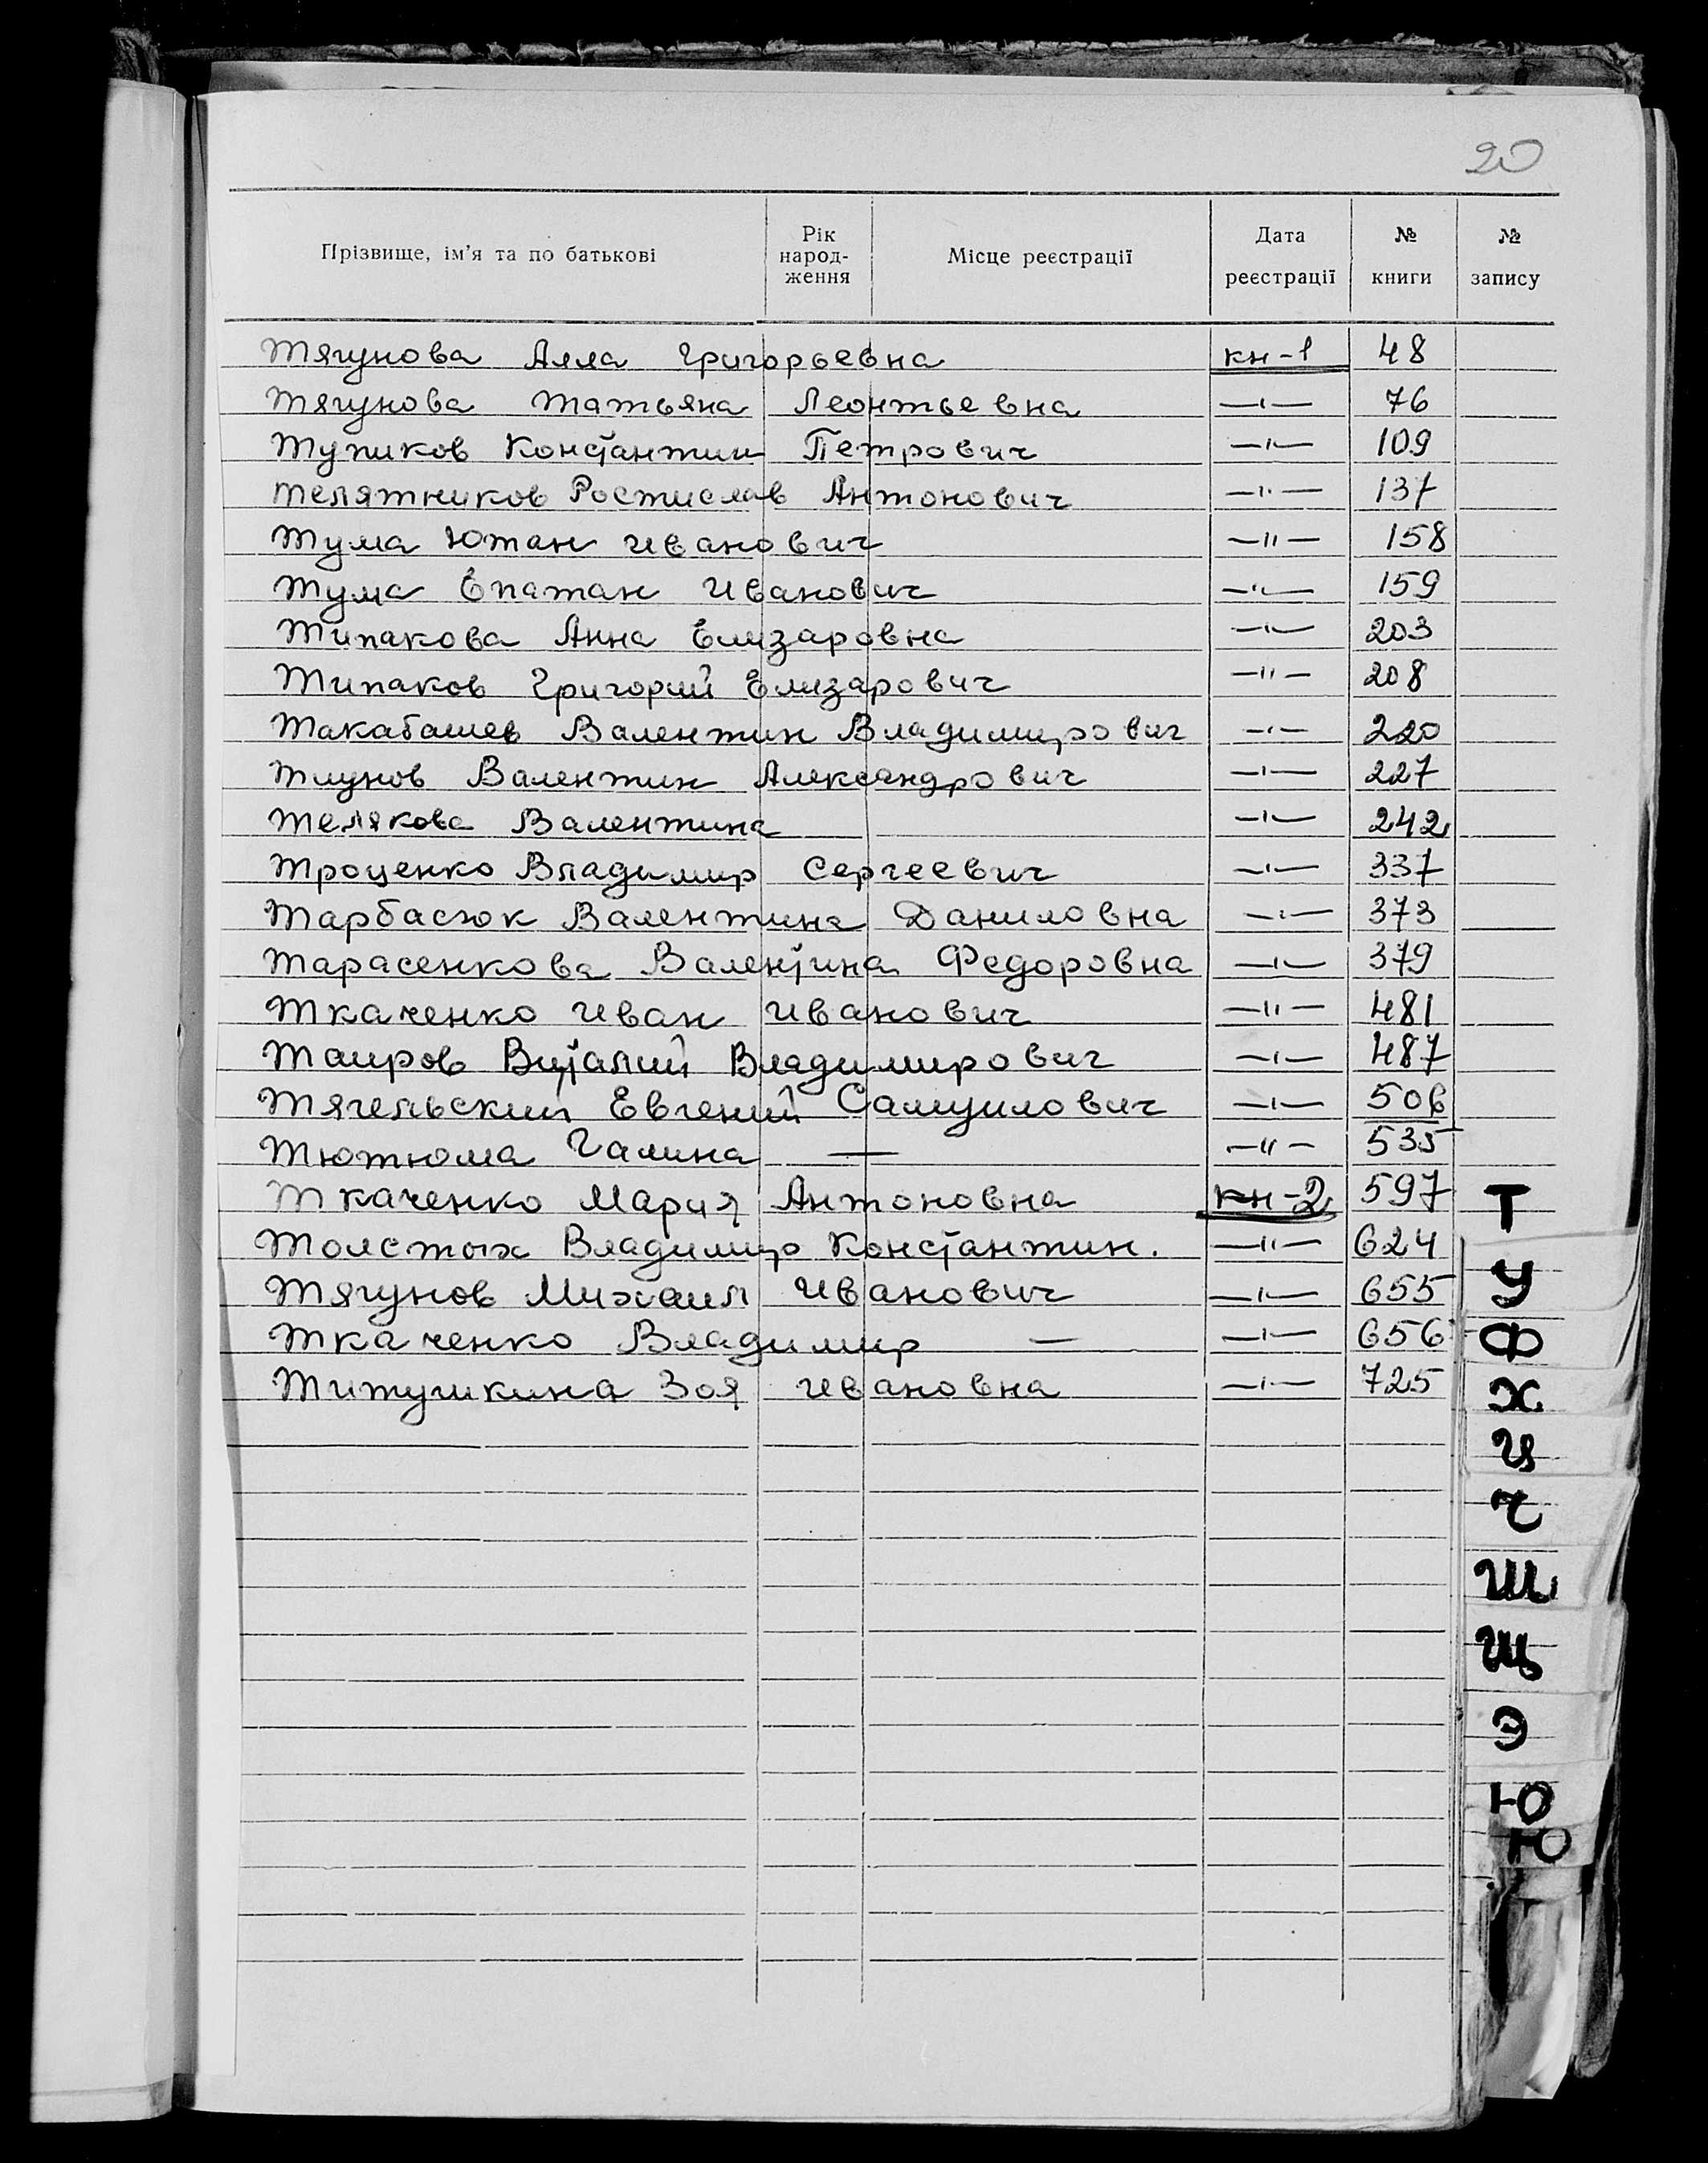 20
Прізвище, ім'я та по батькові Рік народ-ження Місце реєстрації Дата реєстрації № книги № запису
Тягунова Алла Григорьевна кн-1 48
Тягунова Татьяна Леонтьевна —"— 76
Тупиков Константин Петрович —"— 109
Телятников Ростислав Антонович —"— 137
Тума Ютан Иванович —"— 158
Тума Епатан Иванович —"— 159
Типакова Анна Елизаровна —"— 203
Типаков Григорий Елизарович —"— 208
Такабашев Валентин Владимирович —"— 220
Тлунов Валентин Александрович —"— 227
Телякова Валентина —"— 242
Троценко Владимир Сергеевич —"— 337
Тарбасюк Валентина Даниловна —"— 373
Тарасенкова Валентина Федоровна —"— 379
Ткаченко Иван Иванович —"— 481
Таиров Виталий Владимирович —"— 487
Тягельский Евгений Самуилович —"— 506
Тютюма Галина — —"— 535
Ткаченко Мария Антоновна кн-2 597
Толстых Владимир Константин. —"— 624
Тягунов Михаил Иванович —"— 655
Ткаченко Владимир — —"— 656
Титушкина Зоя Ивановна —"— 725
Т
У
Ф
Х
Ц
Ч
Ш
Щ
Э
Ю
Ю